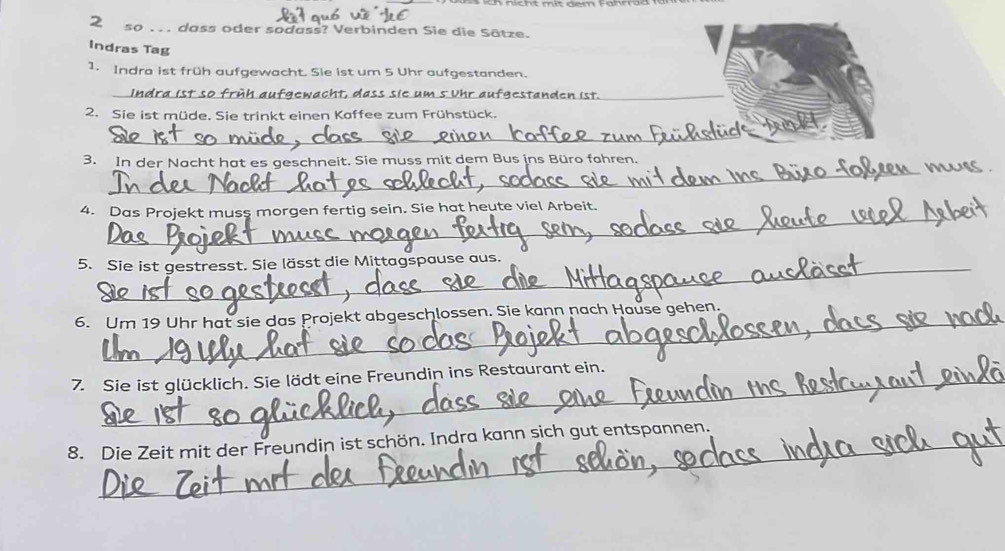 ich nicht mit dem Fahrrad
2 so ... dass oder sodass? Verbinden Sie die Sätze.
Indras Tag
1. Indra ist früh aufgewacht. Sie ist um 5 Uhr aufgestanden.
Indra ist so früh aufgewacht, dass sie um 5 Uhr aufgestanden ist.
2. Sie ist müde. Sie trinkt einen Kaffee zum Frühstück.
Sie ist so müde, dass sie einen Kaffee zum Frühstück trinkt.
3. In der Nacht hat es geschneit. Sie muss mit dem Bus ins Büro fahren.
In der Nacht hat es schlecht, sodass sie mit dem ins Büro fahren muss.
4. Das Projekt muss morgen fertig sein. Sie hat heute viel Arbeit.
Das Projekt muss morgen fertig sein, sodass sie heute viel Arbeit
5. Sie ist gestresst. Sie lässt die Mittagspause aus.
Sie ist so gestresst, dass sie die Mittagspause auslässt
6. Um 19 Uhr hat sie das Projekt abgeschlossen. Sie kann nach Hause gehen.
Um 19 Uhr hat sie so das Projekt abgeschlossen, dass sie nach
7. Sie ist glücklich. Sie lädt eine Freundin ins Restaurant ein.
Sie ist so glücklich, dass sie eine Freundin ins Restaurant einlä
8. Die Zeit mit der Freundin ist schön. Indra kann sich gut entspannen.
Die Zeit mit der Freundin ist schön, sodass indra sich gut